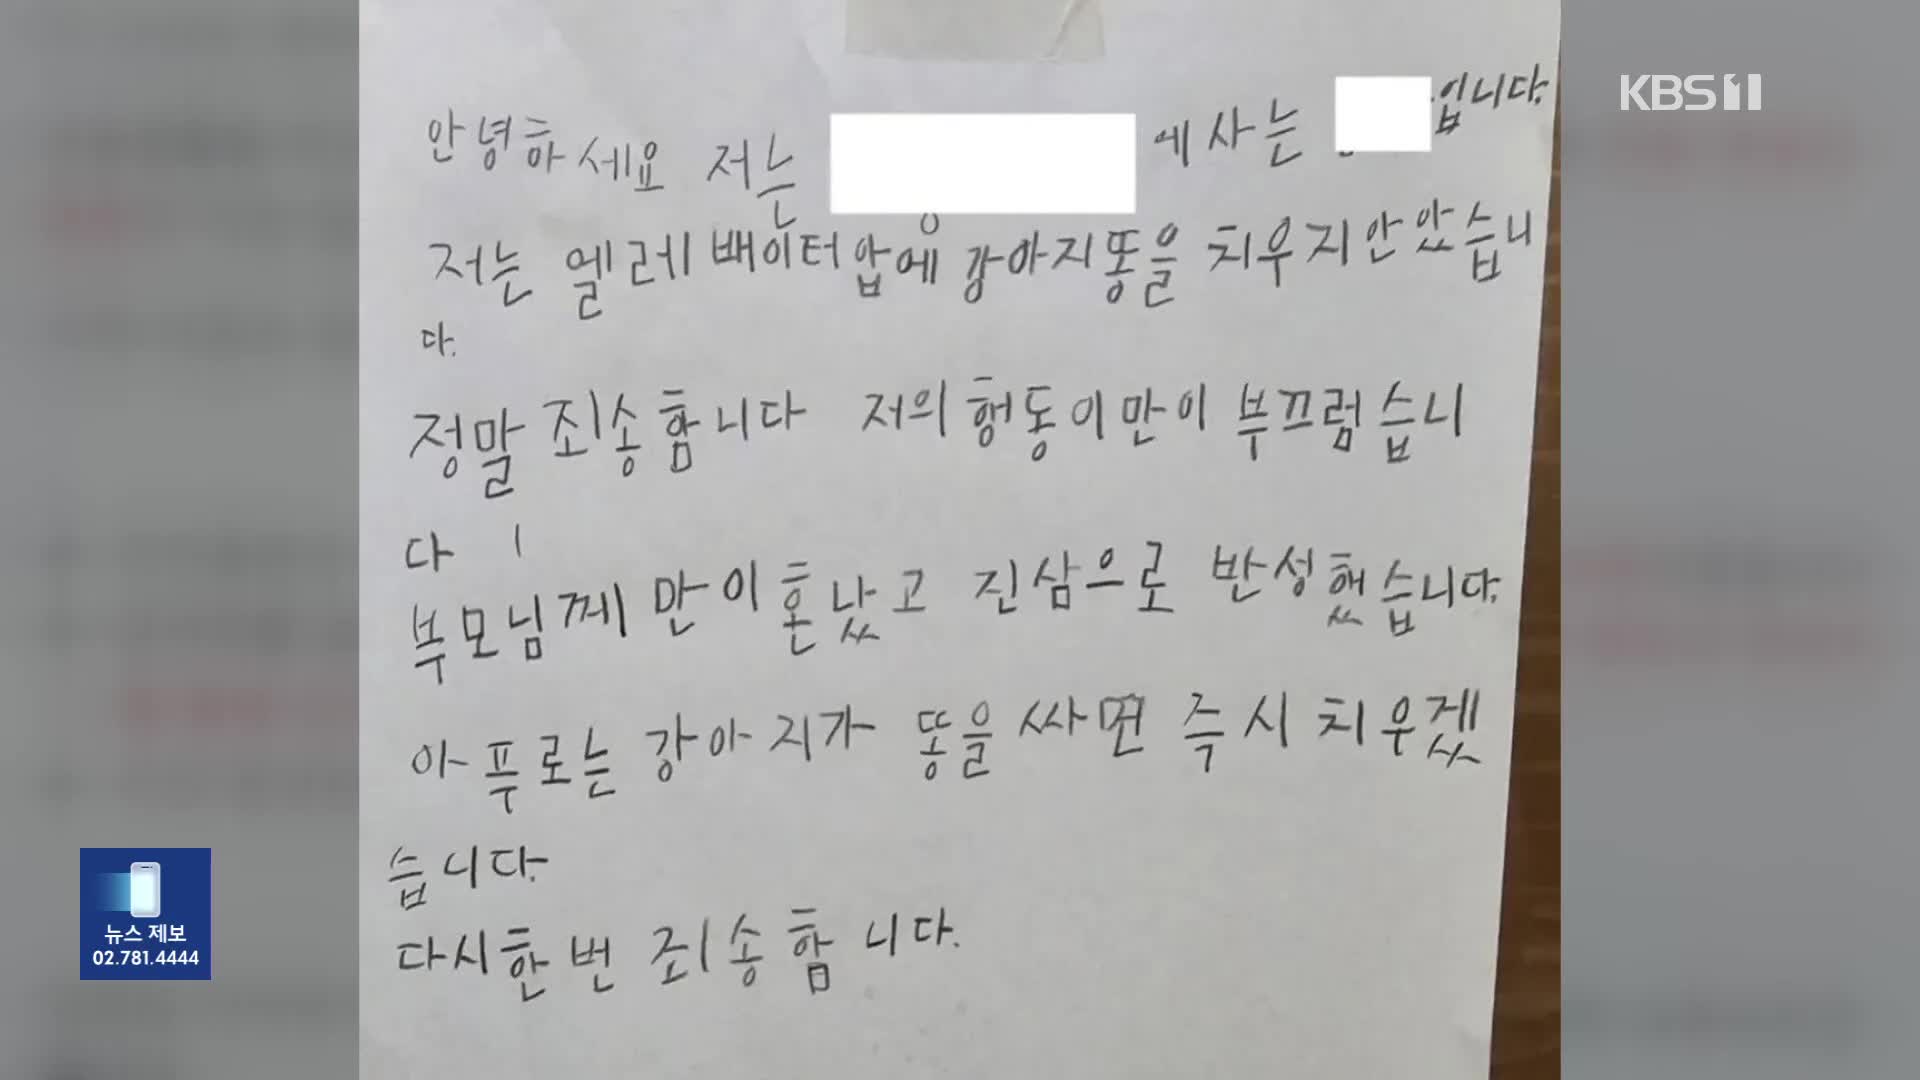 KBS 1
안녕하세요 저는 에 사는 입니다.
저는 엘레배이터 압에 강아지똥을 치우지안았습니
다.
정말 죄송합니다 저의 행동이만이 부끄럽습니
다
부모님께 만이 혼났고 진삼으로 반성했습니다.
아푸로는 강아지가 똥을 싸면 즉시 치우겠
습니다.
다시한번 죄송합니다.
뉴스 제보
02.781.4444